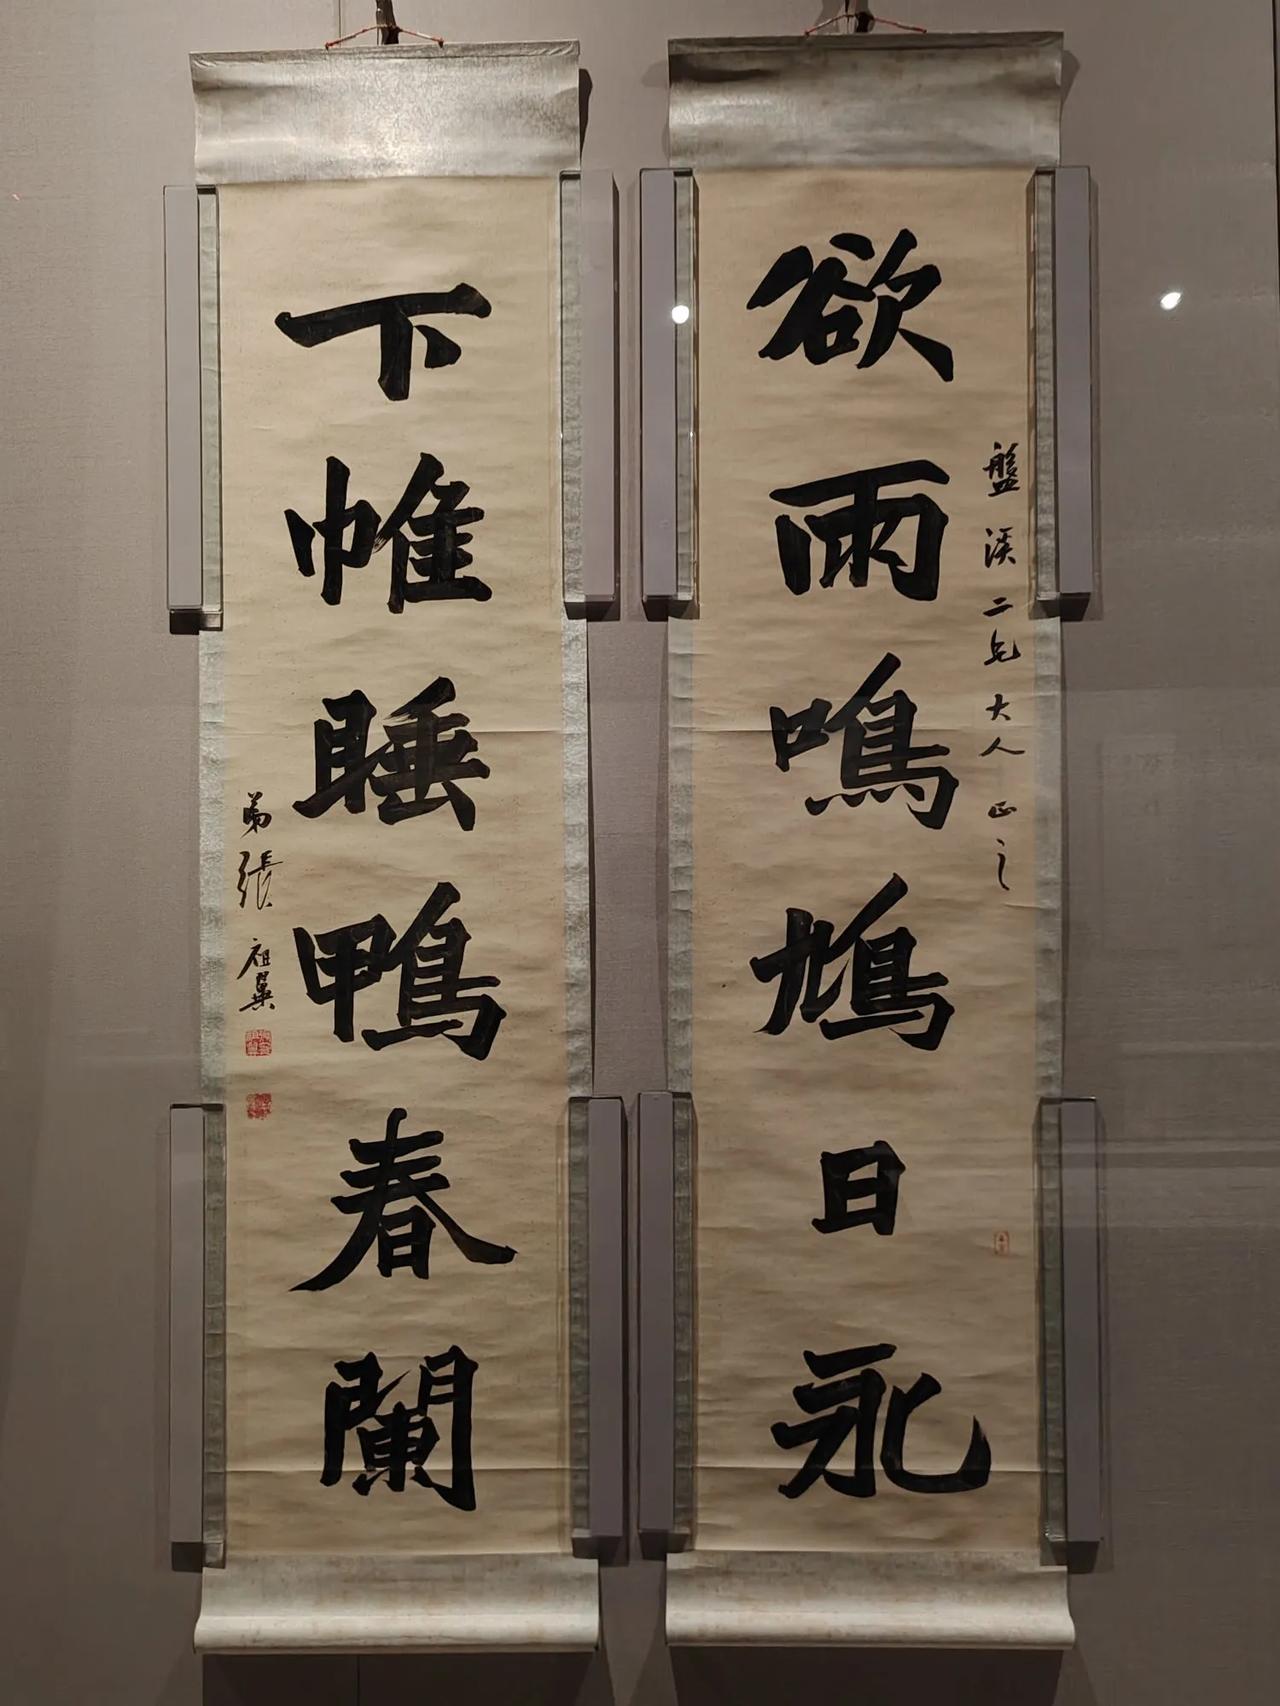 盤溪二兄大人正之
欲雨鳴鳩日永
下帷睡鴨春闌
弟張祖翼